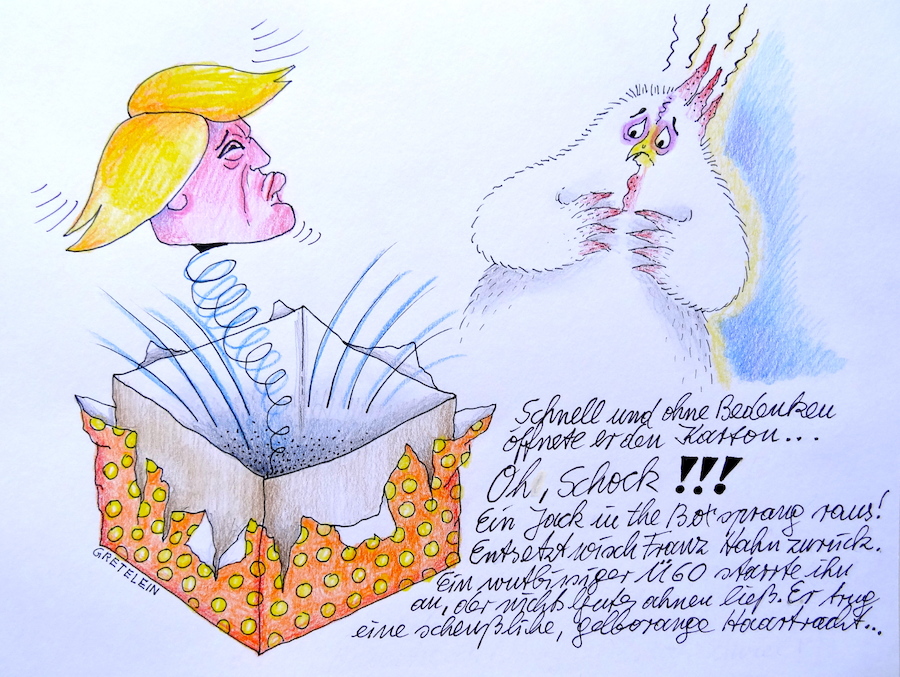 Schnell und ohne Bedenken
öffnete er den Karton...
Oh, Schock !!!
Ein Jack in the Box sprang raus!
Entsetzt wisch Franz Hahn zurück.
Ein wutbissiger Ü60 starrte ihn
an, der nichts Gutes ahnen ließ. Er trug
eine scheußliche, gelborange Haartracht...
GRETELEIN